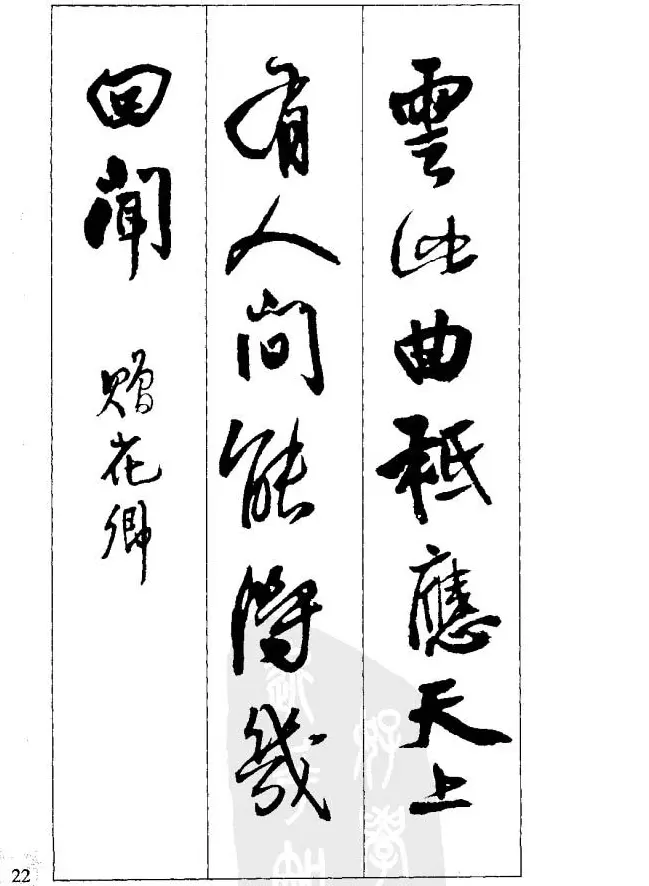 雲此曲祗應天上
有人间能得幾
回聞
贈花卿
22